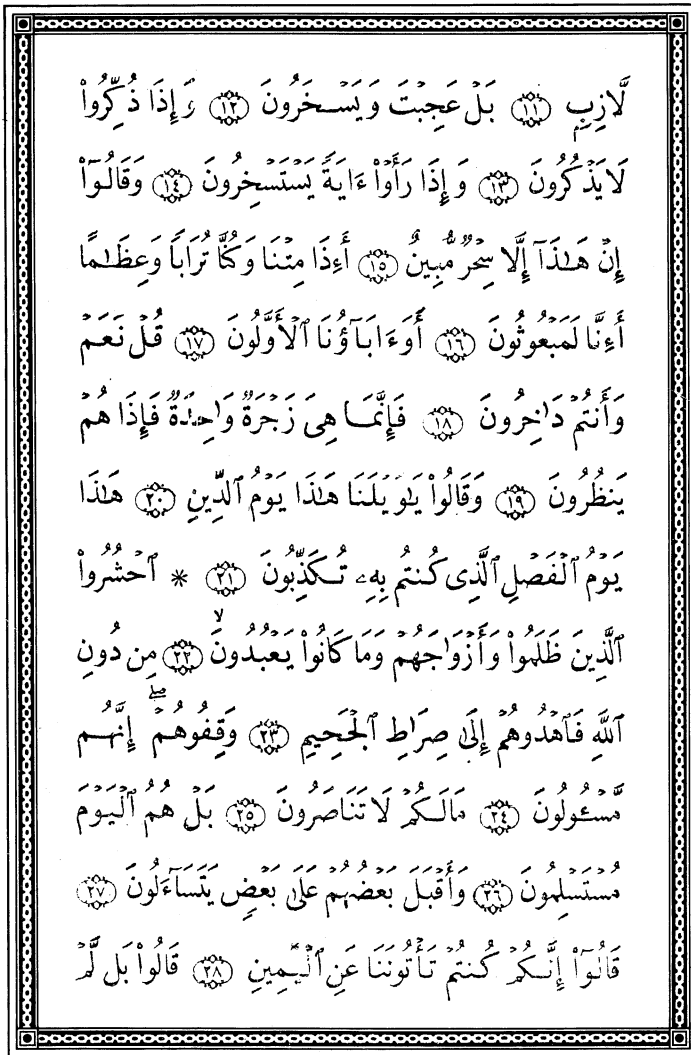 لَّازِبٍ ﴿١١﴾ بَلْ عَجِبْتَ وَيَسْخَرُونَ ﴿١٢﴾ وَإِذَا ذُكِّرُوا۟
لَا يَذْكُرُونَ ﴿١٣﴾ وَإِذَا رَأَوْا۟ ءَايَةً يَسْتَسْخِرُونَ ﴿١٤﴾ وَقَالُوٓا۟
إِنْ هَـٰذَآ إِلَّا سِحْرٌ مُّبِينٌ ﴿١٥﴾ أَءِذَا مِتْنَا وَكُنَّا تُرَابًا وَعِظَـٰمًا
أَءِنَّا لَمَبْعُوثُونَ ﴿١٦﴾ أَوَءَابَآؤُنَا ٱلْأَوَّلُونَ ﴿١٧﴾ قُلْ نَعَمْ
وَأَنتُمْ دَٰخِرُونَ ﴿١٨﴾ فَإِنَّمَا هِىَ زَجْرَةٌ وَٰحِدَةٌ فَإِذَا هُمْ
يَنظُرُونَ ﴿١٩﴾ وَقَالُوا۟ يَـٰوَيْلَنَا هَـٰذَا يَوْمُ ٱلدِّينِ ﴿٢٠﴾ هَـٰذَا
يَوْمُ ٱلْفَصْلِ ٱلَّذِى كُنتُم بِهِۦ تُكَذِّبُونَ ﴿٢١﴾ * ٱحْشُرُوا۟
ٱلَّذِينَ ظَلَمُوا۟ وَأَزْوَٰجَهُمْ وَمَا كَانُوا۟ يَعْبُدُونَ ۙ ﴿٢٢﴾ مِن دُونِ
ٱللَّهِ فَٱهْدُوهُمْ إِلَىٰ صِرَٰطِ ٱلْجَحِيمِ ﴿٢٣﴾ وَقِفُوهُمْ ۖ إِنَّهُم
مَّسْـُٔولُونَ ﴿٢٤﴾ مَا لَكُمْ لَا تَنَاصَرُونَ ﴿٢٥﴾ بَلْ هُمُ ٱلْيَوْمَ
مُسْتَسْلِمُونَ ﴿٢٦﴾ وَأَقْبَلَ بَعْضُهُمْ عَلَىٰ بَعْضٍ يَتَسَآءَلُونَ ﴿٢٧﴾
قَالُوٓا۟ إِنَّكُمْ كُنتُمْ تَأْتُونَنَا عَنِ ٱلْيَمِينِ ﴿٢٨﴾ قَالُوا۟ بَل لَّمْ